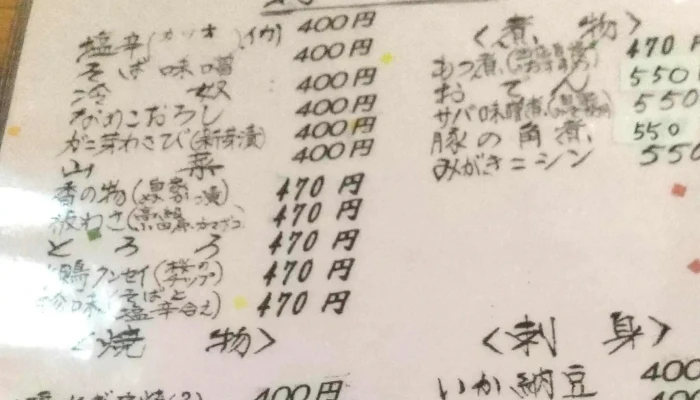 400円
塩辛(カツオ、イカ) 400円
そば味噌 400円
冷奴 400円
なめこおろし 400円
わさび(新芽漬) 400円
山菜
香の物(自家漬) 470円
板わさ( ) 470円
とろろ 470円
鴨クンセイ(桜のチップ) 470円
珍味(そばと塩辛合え) 470円
焼物>
400円
<煮物>
もつ煮 470円
おでん 550
サバ味噌煮 550
豚の角煮 550
みがきニシン 550
<刺身>
いか納豆 400